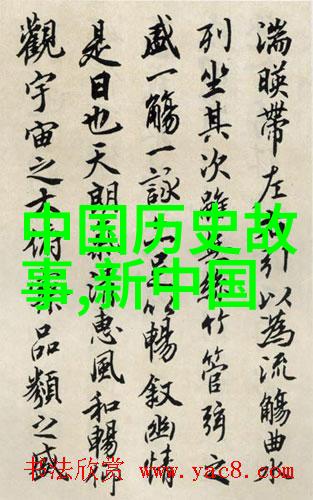 湍暎帶左引以為流觴曲
列坐其次雖竹管弦之
盛一觴一詠暢叙幽情
是日也天朗惠風和暢
觀宇宙之大品類之盛
中国历史故
事,新中国
书法欣赏 www.yac8.com